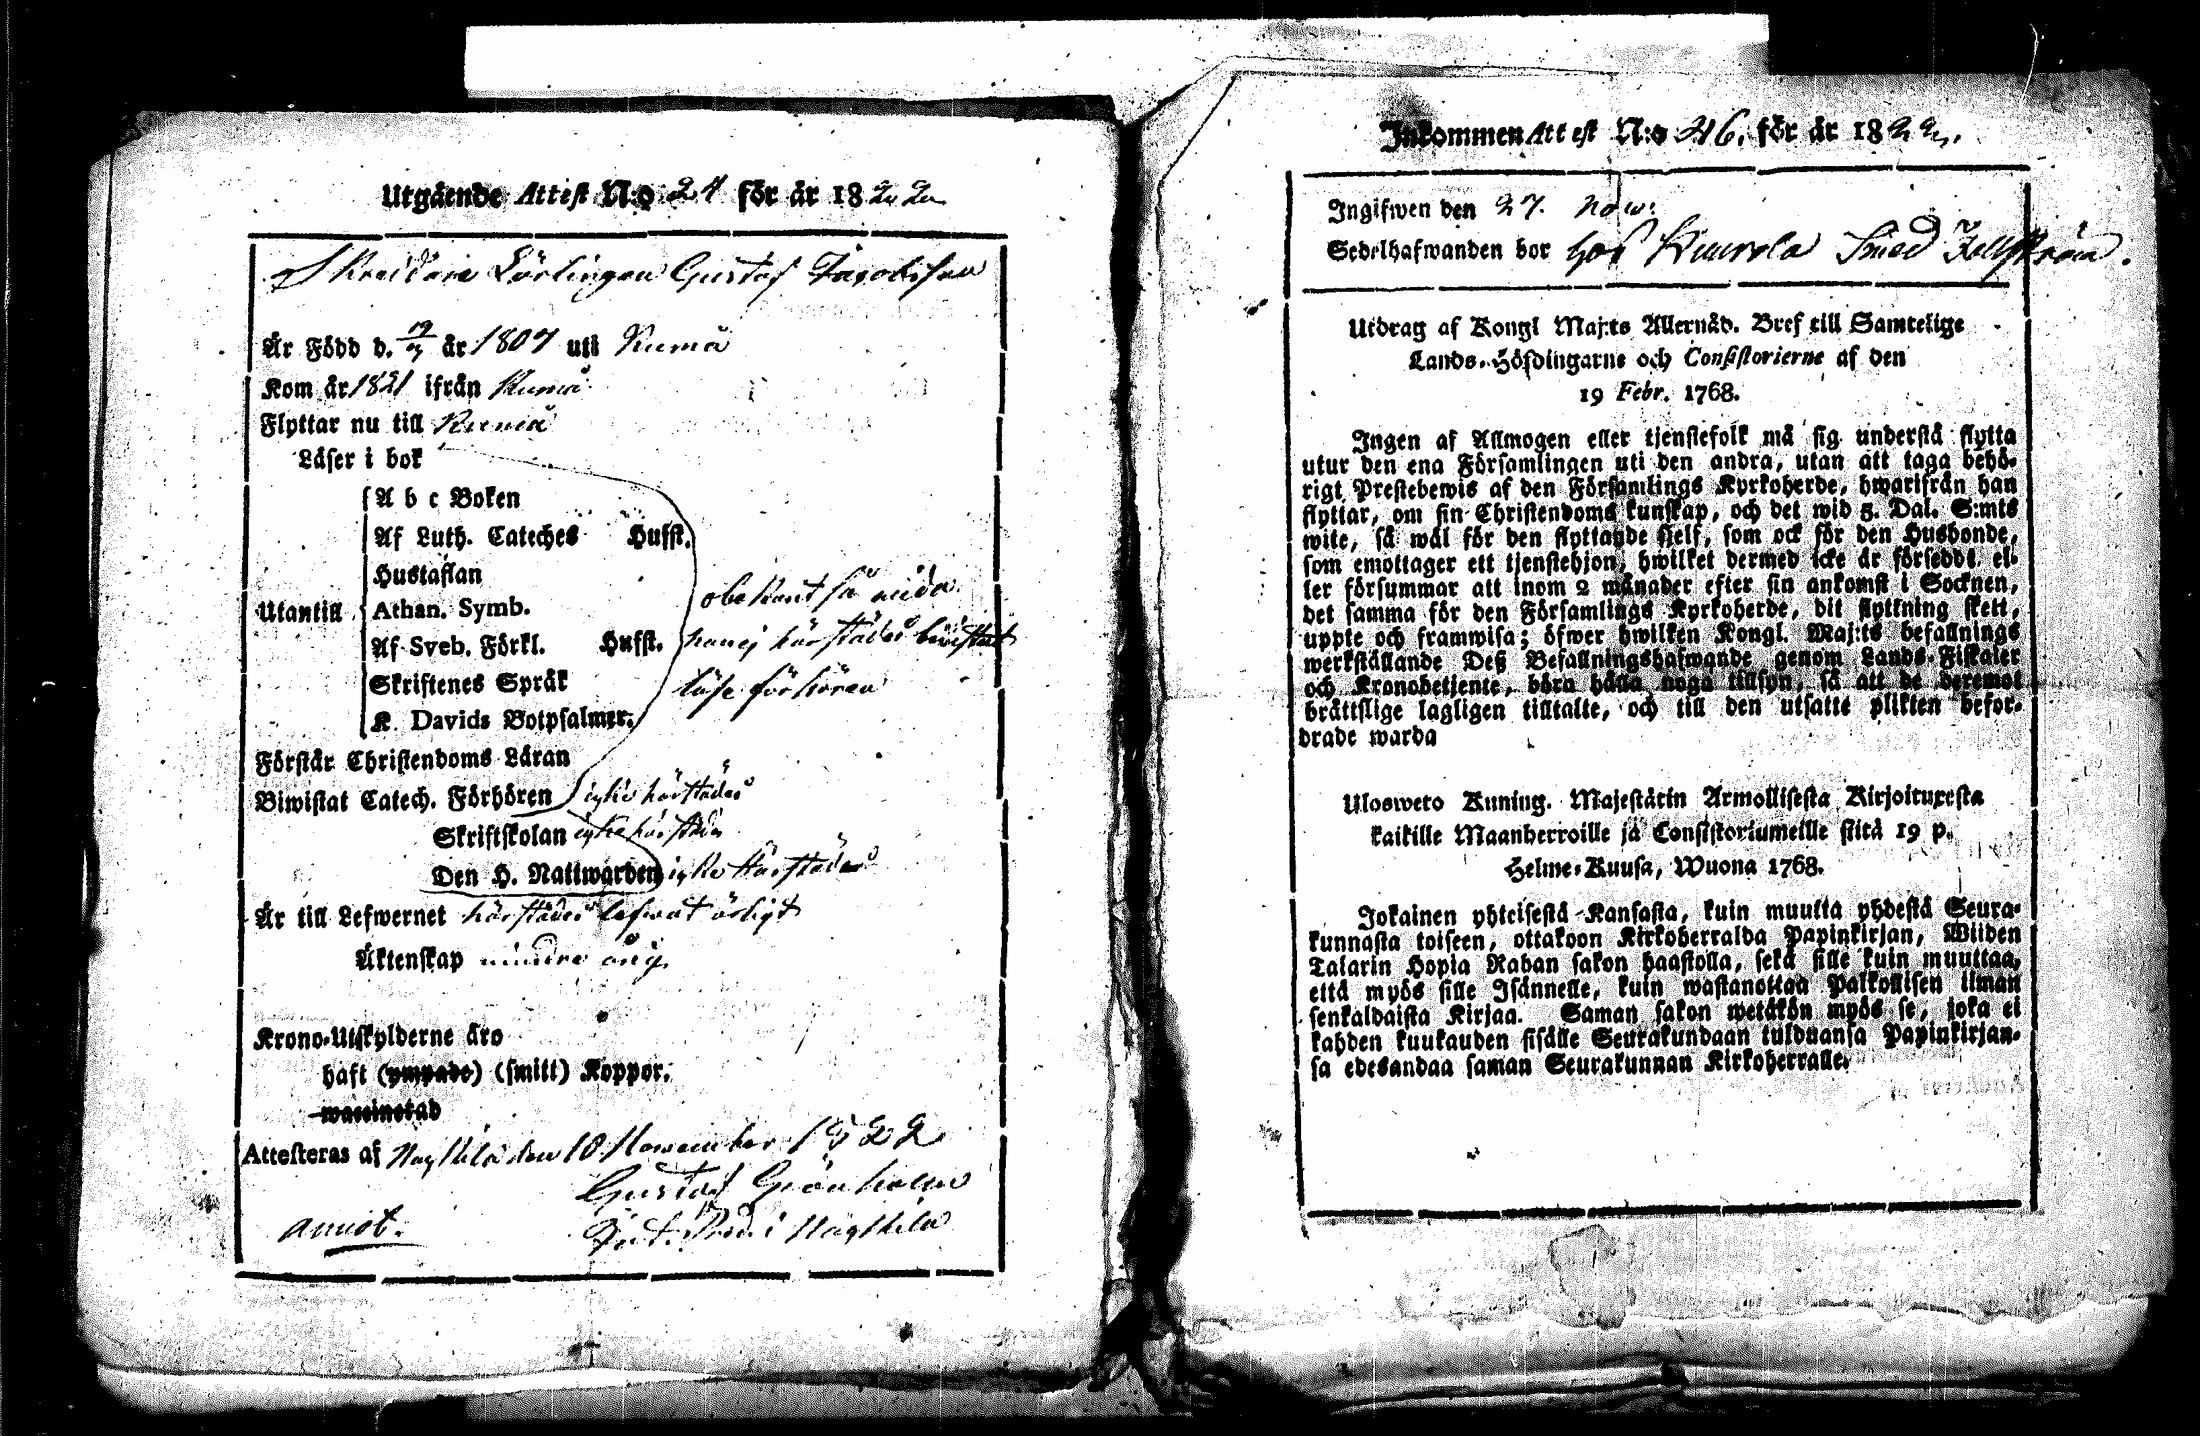 Utgående Attest N:o 24 för år 1822
Skreddare Lärlingen Gustaf Jacobsson
Är Född d. 19/3 år 1807 uti Kumo
Kom år 1821 ifrån Kumo
Flyttar nu till Kumo
Läser i bok
A b c Boken
Af Luth. Cateches Husst.
Hustaflan
Utantill Athan. Symb.
obekant få nida
Af Sveb. Förkl. Husst. han ej härstädes bewistat
Skriftenes Språk läse förhören
K. Davids Botpsalmer.
Förstår Christendoms Läran
Biwistat Catech. Förhören icke härstädes
Skriftskolan icke härstädes
Den H. Nattwarden icke härstädes
Är till Lefwernet härstädes lefwat ärligt
Äktenskap mindre årig.
Krono-Utskylderne äro
haft (ympade) (smitt) Koppor.
waccinerad
Attesteras af Nackila den 18 November 1822
Gustaf Grönholm
amiot. Pred. i Nackila
Inkommen Attest N:o 26. för år 1822.
Ingifwen den 27. Now:
Sedelhafwanden bor hos Smed
Utdrag af Kongl Maj:ts Allernåd. Bref till Samtelige
Lands-Höfdingarne och Consistorierne af den
19 Febr. 1768.
Ingen af Allmogen eller tjenstefolk må sig understå flytta
utur den ena Församlingen uti den andra, utan att taga behö-
rigt Prestebewis af den Församlings Kyrkoherde, hwarifrån han
flyttar, om sin Christendoms kunskap, och det wid 5. Dal. S:mts
wite, så wäl för den flyttande sjelf, som ock för den Husbonde,
som emottager ett tjenstehjon, hwilket dermed icke är förseddt. el-
ler försummar att inom 2 månader efter sin ankomst i Socknen,
det samma för den Församlings Kyrkoherde, dit flyttning skett,
uppte och framwisa; öfwer hwilken Kongl. Maj:ts befallnings
werkställande Deß Befallningshafwande genom Lands-Fiskaler
och Kronobetjente, böra hålla noga tillsyn, så att de deremot
bråttslige lagligen tilltalte, och till den utsatte plikten befor-
drade warda
Ulosweto Kuning. Majestätin Armollisesta Kirjoituxesta
kaikille Maanherroille ja Consistoriumeille siitä 19 p.
Helme-Kuusa, Wuona 1768.
Jokainen yhteisestä Kansasta, kuin muutta yhdestä Seura-
kunnasta toiseen, ottakoon Kirkoherralda Papinkirjan, Wiiden
Talarin Hopia Rahan sakon haastolla, sekä sille kuin muuttaa,
että myös sille Isännelle, kuin wastanottaa Palkollisen ilman
senkaldaista Kirjaa. Saman sakon wetäkön myös se, joka ei
kahden kuukauden sisälle Seurakundaan tulduansa Papinkirjan-
sa edesandaa saman Seurakunnan Kirkoherralle.